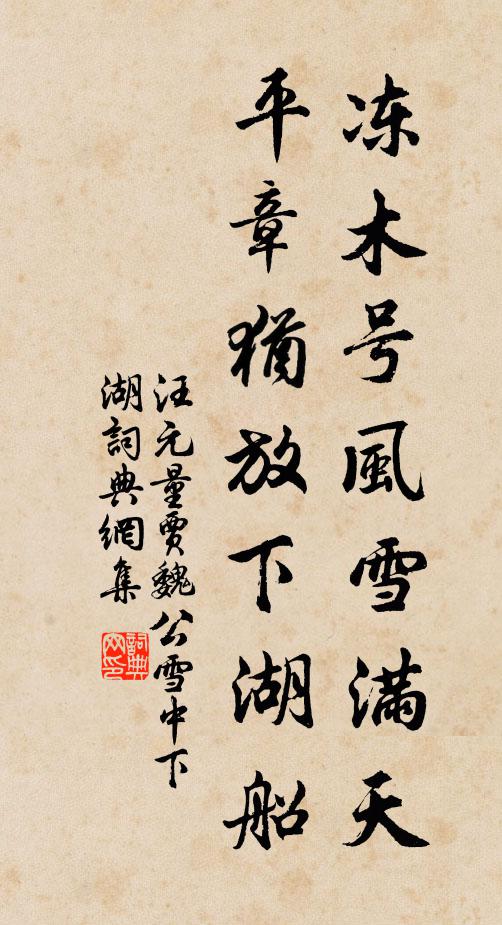 冻木号風雪滿天
平章猶放下湖船
汪元量賈魏公雪中下
湖詞典網集
詞典
网印